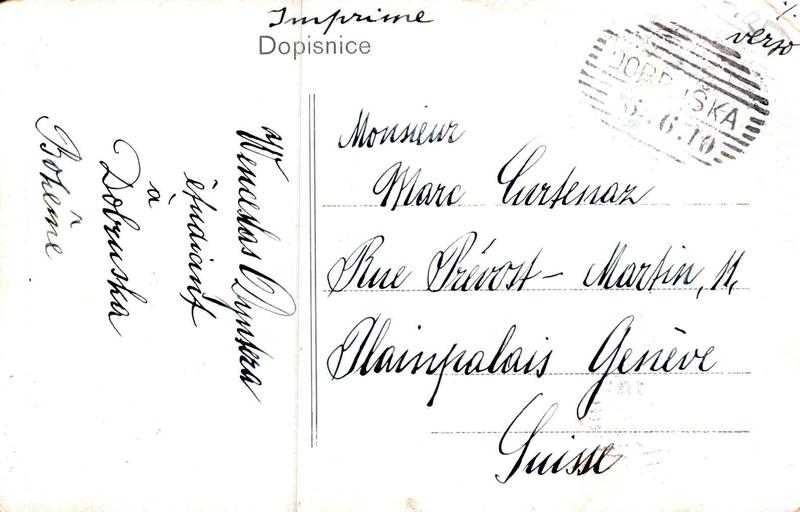 Imprime
Dopisnice
verso
DOBRUŠKA
6.6.10
Wenceslas
étudiant
à
Dobruska
Bohème
Monsieur
Marc Curtenaz
Rue Prévost-Martin, 11,
Plainpalais Genève
Suisse